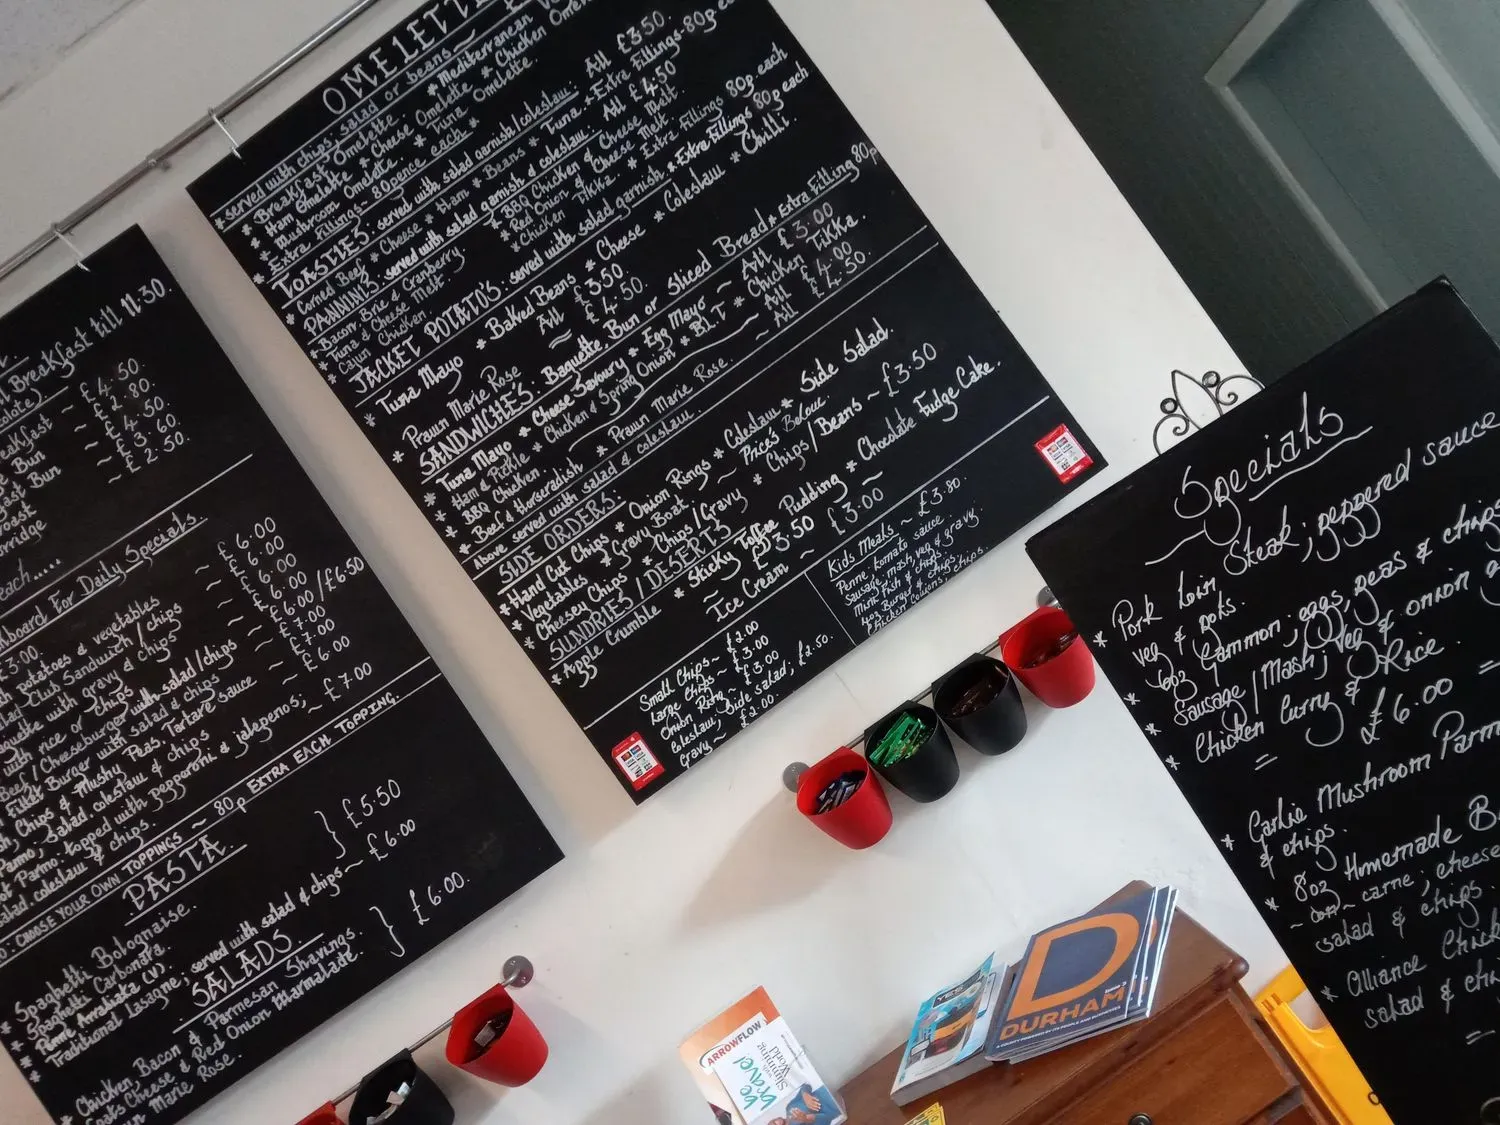 Breakfast till 11.30.
£4.50
£2.80
£4.50
£3.60
£2.50
each.....
board For Daily Specials
£3.00
potatoes & vegetables ~ £6.00
Club Sandwich / chips ~ £6.00
Baguette with gravy & chips £6.00
with rice or chips ~ £6.00 / £6.50
Beef / Cheeseburger with salad / chips ~ £7.00
Fillet Burger with salad & chips ~ £7.00
Chips & Mushy Peas, Tartare sauce ~ £6.00
Parmo, Salad, coleslaw & chips
Hot Parmo: topped with pepperoni & jalepenos; ~ £7.00
salad, coleslaw & chips.
CHOOSE YOUR OWN TOPPINGS ~ 80p EXTRA EACH TOPPING.
PASTA
* Spaghetti Bolognaise.
* Spaghetti Carbonara. } £5.50
* Penne Arrabiata (V)
* Traditional Lasagne; served with salad & chips ~ £6.00
SALADS
* Chicken, Bacon & Parmesan Shavings
Goats Cheese & Red Onion Marmalade. } £6.00
Marie Rose.
OMELETTE
* served with chips; salad or beans ~
* Breakfast Omelette * Mediterranean
* Ham Omelette * Cheese Omelette * Chicken
* Mushroom Omelette. * Tuna Omelette.
* Extra Fillings ~ 80pence each *
TOASTIES: served with salad garnish/coleslaw. All £3.50
* Corned Beef * Cheese * Ham * Beans * Tuna * Extra Fillings ~ 80p each
PANINIS: served with salad garnish & coleslaw. All £4.50
* Bacon, Brie & Cranberry * BBQ Chicken & Cheese Melt
* Tuna & Cheese Melt * Red Onion & Cheese Melt.
* Cajun Chicken. * Chicken Tikka. * Extra Fillings 80p each
JACKET POTATO'S: served with salad garnish * Extra Fillings 80p each
* Tuna Mayo * Baked Beans * Cheese * Coleslaw * Chilli
All £3.50
* Prawn Marie Rose ~ £4.50.
SANDWICHES: Baguette Bun or Sliced Bread * Extra Filling 80p
* Tuna Mayo * Cheese Savoury * Egg Mayo ~ All £3.00
* Ham & Pickle * Chicken & Spring Onion * BLT * Chicken Tikka
* BBQ Chicken ~ All £4.00
* Beef & Horseradish * Prawn Marie Rose. ~ All £4.50.
Above served with salad & coleslaw.
SIDE ORDERS:
* Hand Cut Chips * Onion Rings * Coleslaw * Side Salad.
* Vegetables * Gravy Boat ~ Prices Below
* Cheesey Chips * Chips / Gravy * Chips / Beans ~ £3.50
SUNDRIES / DESERTS
* Apple Crumble * Sticky Toffee Pudding * Chocolate Fudge Cake.
£3.50
Ice Cream ~ £3.00
Small Chips ~ £2.00
Large Chips ~ £3.00
Onion Rings ~ £3.00
Coleslaw, Side salad, £2.50.
Gravy ~ £2.00
Kids Meals ~ £3.80.
Penne, tomato sauce.
Sausage, mash, veg & gravy.
Mini Fish & chips.
4oz Burger & chips
Chicken Goujons, chips.
Specials
* Pork Loin Steak; peppered sauce
veg & pots.
* 6oz Gammon; eggs, peas & chips
* Sausage / Mash; veg & onion
* Chicken Curry & Rice.
= £6.00 =
* Garlic Mushroom Parmo
& chips.
* 8oz Homemade
carne; cheese
salad & chips.
* Alliance Chick
salad & chi
ARROWFLOW
Slimming World
be brave!
YES
D
ISSUE 3
DURHAM
A COUNTY POWERED BY ITS PEOPLE AND BUSINESSES